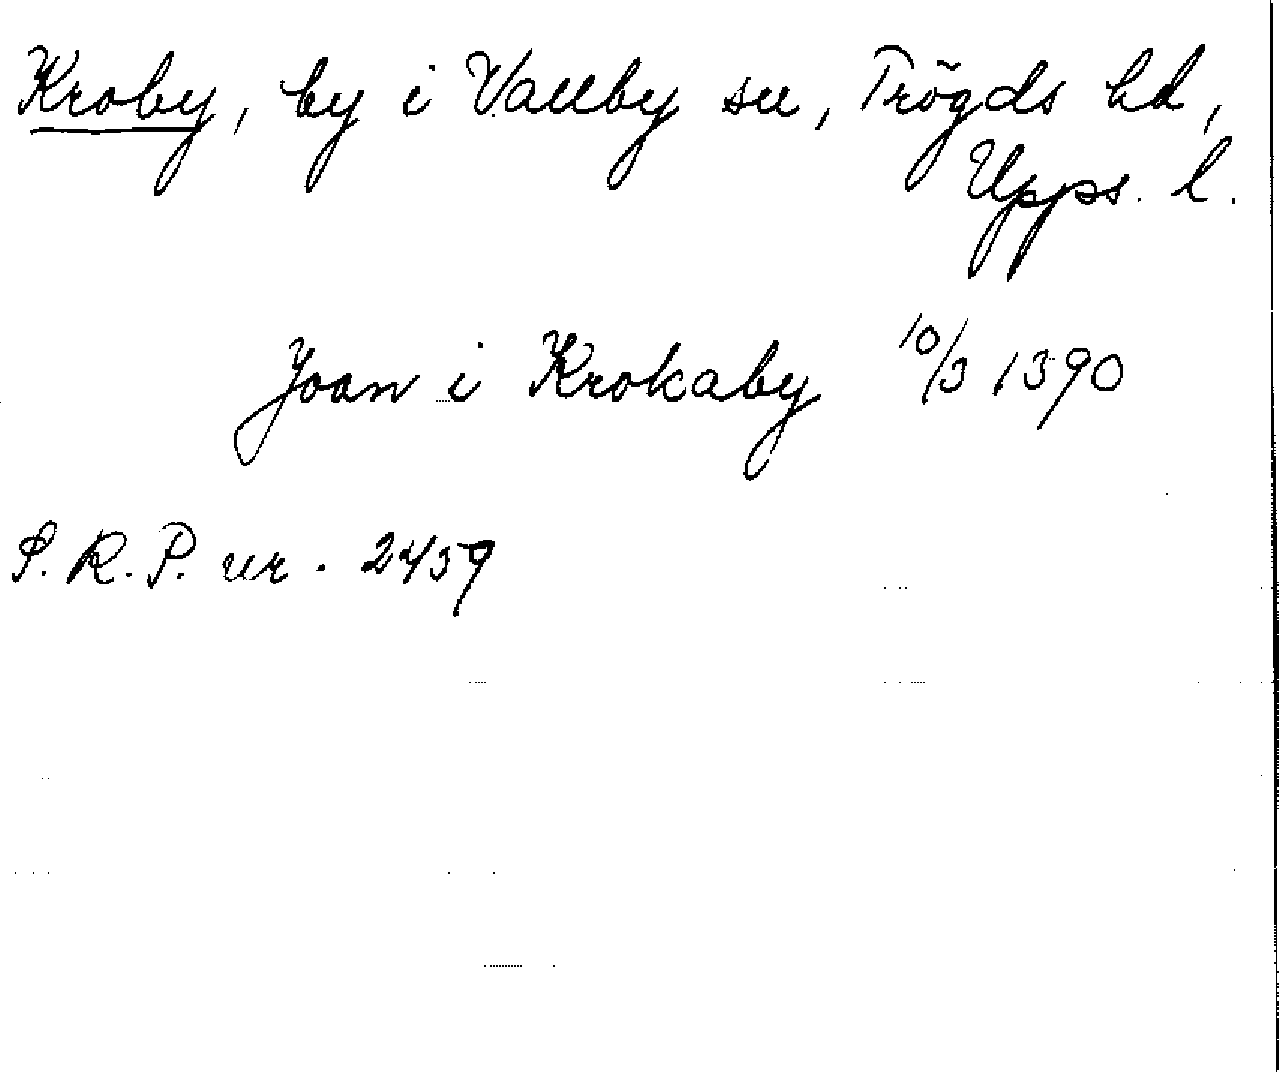 Kroby, by i Vallby sn, Trögds hd,
Upps. l.
Joan i Krokaby 10/3 1390
S.R.P. nr. 2459